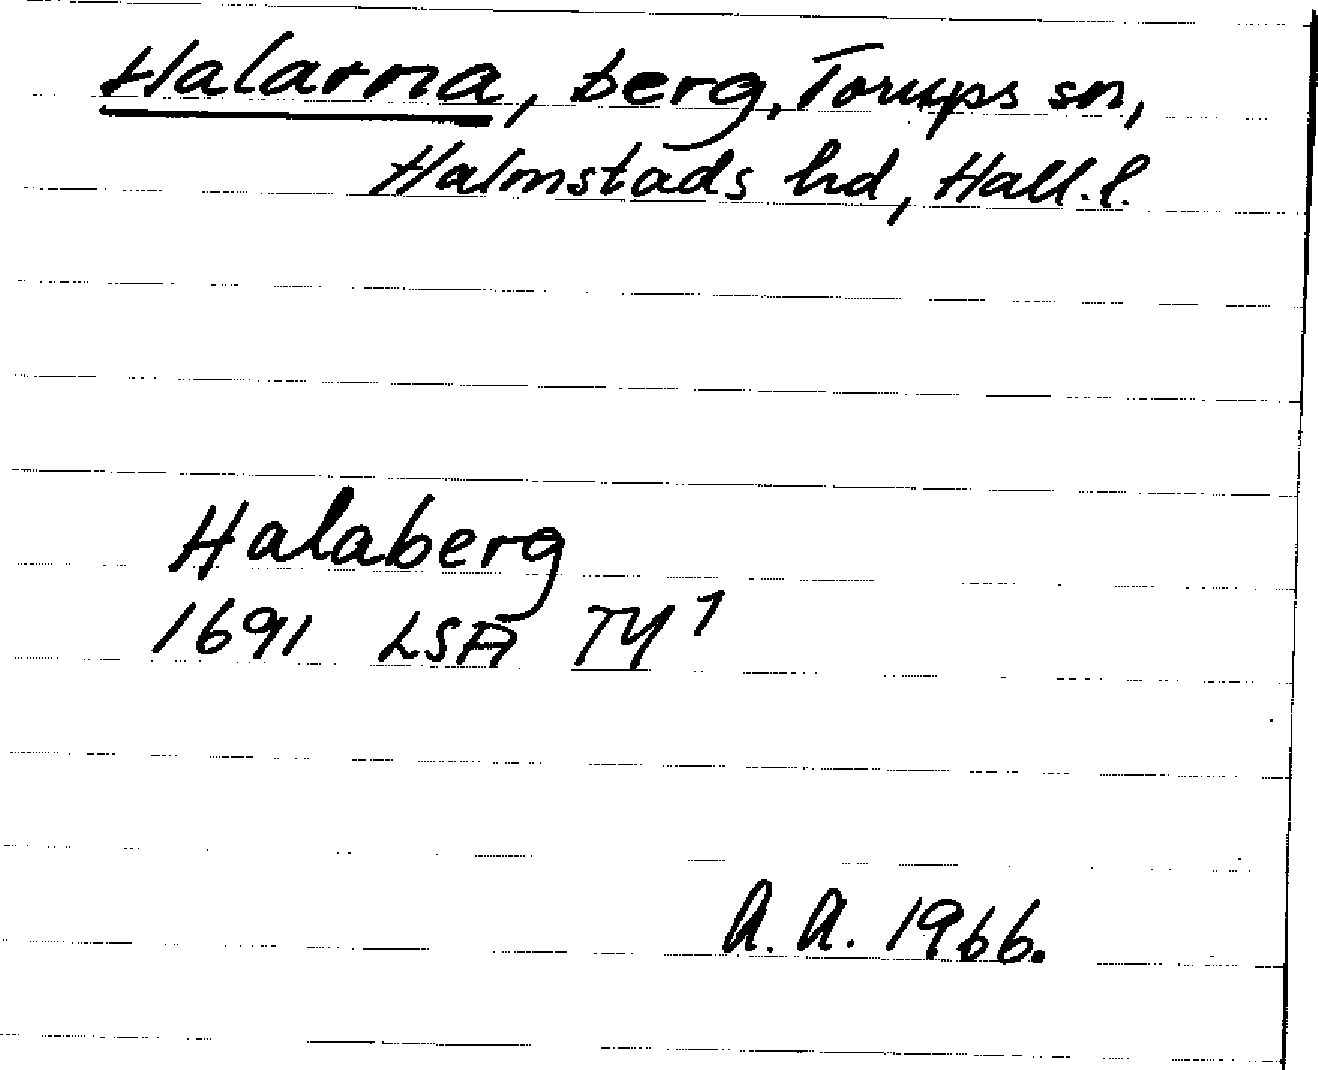 Halarna, berg, Torups sn,
Halmstads hd, Hall.l.
Halaberg
1691 LSA TY¹
A.A. 1966.